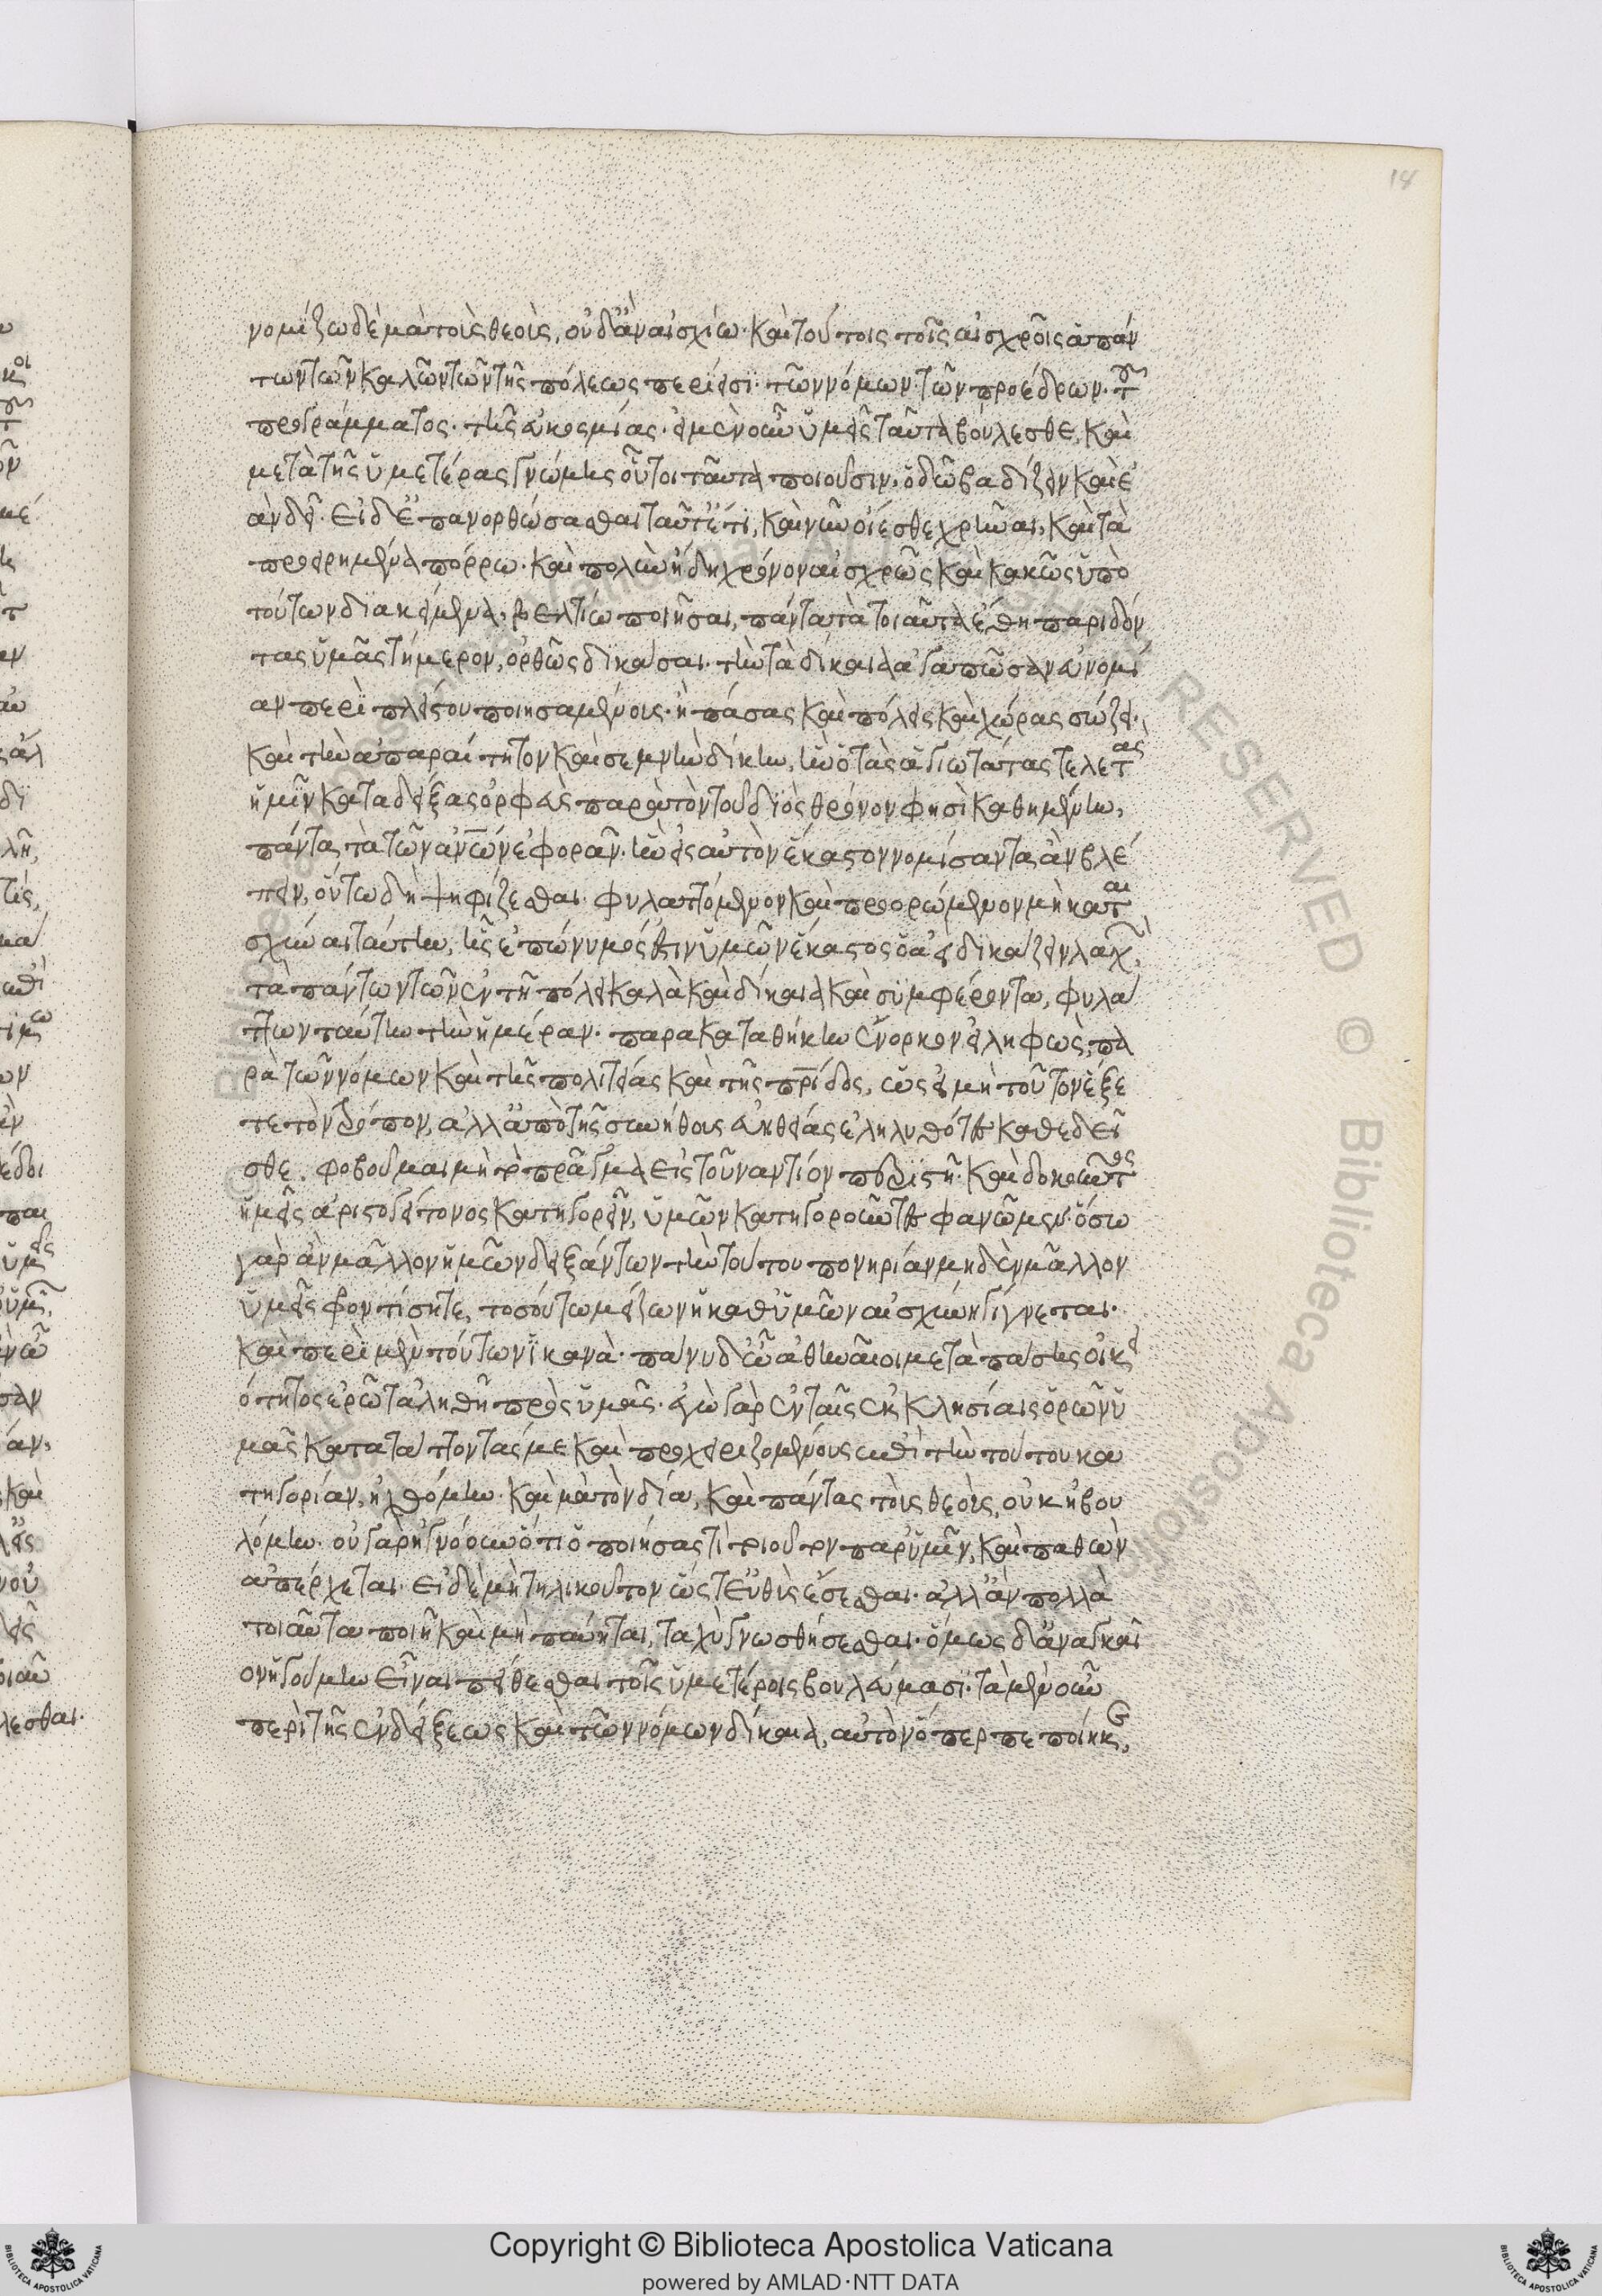 18
νομίζω δὲ μὰ τοὺς θεοὺς, οὐδ' ἂν αἰσχίω· καὶ τούτοις τοῖς αἰσχροῖς ἁπάν
των τῶν καλῶν τῶν τῆς πόλεως περίεισι· τῶν νόμων· τῶν προέδρων· τ
προγράμματος· τῆς εὐκοσμίας· εἰ μὲν οὖν ὑμεῖς ταῦτα βούλεσθε, καὶ
μετὰ τῆς ὑμετέρας γνώμης οὗτοι ταῦτα ποιοῦσιν, ὁδῷ βαδίζειν καὶ ἐ
ᾶν δεῖ· εἰ δ' ἐπανορθώσασθαι ταῦτ' ἔτι, καὶ νῦν οἴεσθε χρῆναι, καὶ τὰ
προειρημένα πόρρω· καὶ πολὺν ἤδη χρόνον αἰσχρῶς καὶ κακῶς ὑπὸ
τούτων διακείμενα, βελτίω ποιῆσαι, πάντα τὰ τοιαῦτα ἔθη παριδόν
τας ὑμᾶς τήμερον, ὀρθῶς δικάσαι· τὴν τὰ δίκαια ἀγαπῶσαν εὐνομί
αν περὶ πλείστου ποιησαμένους· ἣ πάσας καὶ πόλεις καὶ χώρας σώζει·
καὶ τὴν ἀπαραίτητον καὶ σεμνὴν δίκην, ἣν ὁ τὰς ἁγιωτάτας τελετὰς
ἡμῖν καταδείξας ὀρφεὺς παρὰ τὸν τοῦ διὸς θρόνον φησὶ καθημένην,
πάντα τὰ τῶν ἀνων ἐφορᾶν· ἣν εἰς αὐτὸν ἕκαστον νομίσαντα ἂν βλέ
πειν, οὕτω δὴ ψηφίζεσθαι· φυλαττόμενον καὶ προορώμενον μὴ καται
σχῦναι ταύτην, ἧς ἐπώνυμός ἐστιν ὑμῶν ἕκαστος ὁ ἀεὶ δικάζειν λαχ,
τὰ πάντων τῶν ἐν τῇ πόλει καλὰ καὶ δίκαια καὶ συμφέροντα, φυλά
ττων ταύτην τὴν ἡμέραν· παρακαταθήκην ἔνορκον εἰληφὼς, πα
ρὰ τῶν νόμων καὶ τῆς πολιτείας καὶ τῆς πρίδος, ὡς εἰ μὴ τοῦτον ἕξε
τε τὸν τρόπον, ἀλλ' ἀπὸ τῆς συνήθους εὐηθείας ἐληλυθότες καθεδεῖ
σθε. φοβοῦμαι μὴ τὸ πρᾶγμα εἰς τοὐναντίον περιστῇ· καὶ δοκοῦντες
ἡμεῖς ἀριστογείτονος κατηγορεῖν, ὑμῶν κατηγοροῦντες φανῶμεν· ὅσῳ
γὰρ ἂν μᾶλλον ἡμῶν δειξάντων τὴν τούτου πονηρίαν μηδὲν μᾶλλον
ὑμεῖς φροντίσητε, τοσούτῳ μείζων ἡ καθ' ὑμῶν αἰσχύνη γίγνεται·
καὶ περὶ μὲν τούτων ἱκανὰ· πάνυ δ' ὦ ἀθηναῖοι μετὰ πάσης οἰκει
ότητος ἐρῶ τἀληθῆ πρὸς ὑμᾶς· ἐγὼ γὰρ ἐν ταῖς ἐκκλησίαις ὁρῶν ὑ
μᾶς κατατάττοντάς με καὶ προχειριζομένους ἐπὶ τὴν τούτου κα
τηγορίαν, ἠχθόμην· καὶ μὰ τὸν δία, καὶ πάντας τοὺς θεοὺς, οὐκ ἠβου
λόμην· οὐ γὰρ ἠγνόουν ὅτι ὁ ποιήσας τὶ τοιοῦτον παρ' ὑμῖν, καὶ παθὼν
ἀπέρχεται· εἰ δὲ μὴ τηλικοῦτον ὥς τ' εὐθὺς ἔσεσθαι· ἀλλ' ἂν πολλὰ
τοιαῦτα ποιῇ καὶ μὴ παύηται, ταχὺ γνωσθήσεσθαι· ὅμως δ' ἀναγκαῖ
ον ἡγούμην εἶναι πείθεσθαι τοῖς ὑμετέροις βουλεύμασι· τὰ μὲν οὖν
περὶ τῆς ἐνδείξεως καὶ τῶν νόμων δίκαια, αὐτὸν ὅπερ πεποίηκε,
Copyright © Biblioteca Apostolica Vaticana
powered by AMLAD·NTT DATA